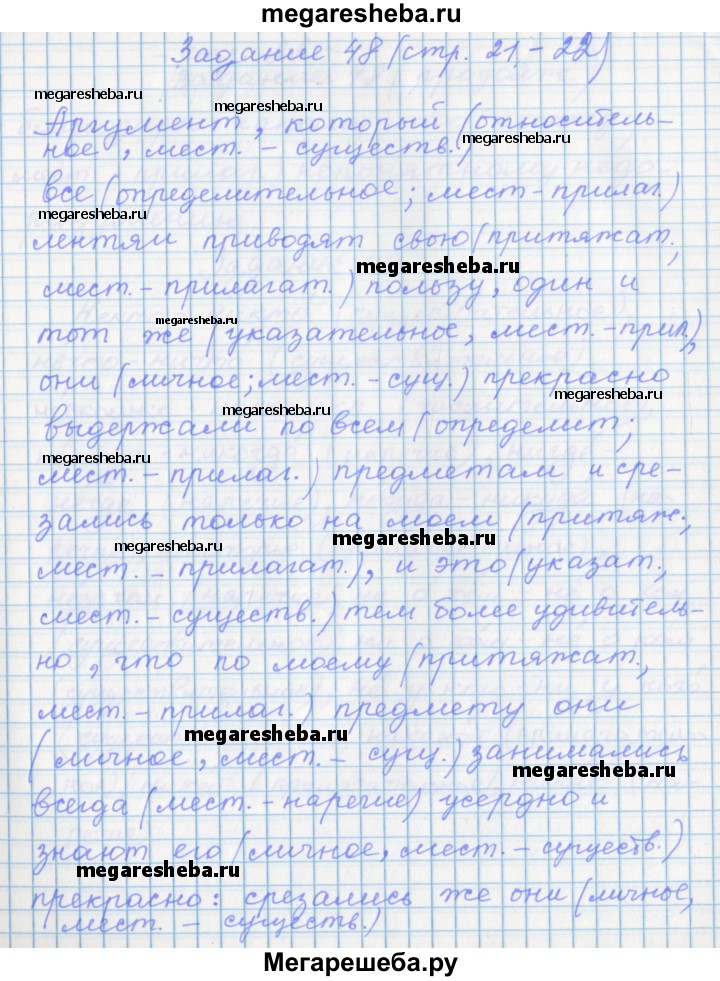 megaresheba.ru
Задание 48 (стр. 21-22)
megaresheba.ru
megaresheba.ru
Аргумент, который (относитель-
ное, мест. - существ.)
megaresheba.ru
все (определительное; мест-прилаг.)
megaresheba.ru
лентяи приводят свою (притяжат.;
megaresheba.ru
мест. - прилагат.) пользу, один и
megaresheba.ru
тот же (указательное, мест. -прил.),
они (личное; мест. - сущ.) прекрасно
megaresheba.ru
megaresheba.ru
выдержали по всем (определит;
megaresheba.ru
мест. - прилаг.) предметам и сре-
зались только на моем (притяж.;
megaresheba.ru
megaresheba.ru
мест. - прилагат.), и это (указат.;
мест. - существ.) тем более удивитель-
но, что по моему (притяжат.,
мест. - прилаг.) предмету они
megaresheba.ru
(личное, мест. - сущ.) занимались
megaresheba.ru
всегда (мест. - наречие) усердно и
знают его (личное, мест. - существ.)
megaresheba.ru
прекрасно: срезались же они (личное,
мест. - существ.)
Мегарешеба.ру